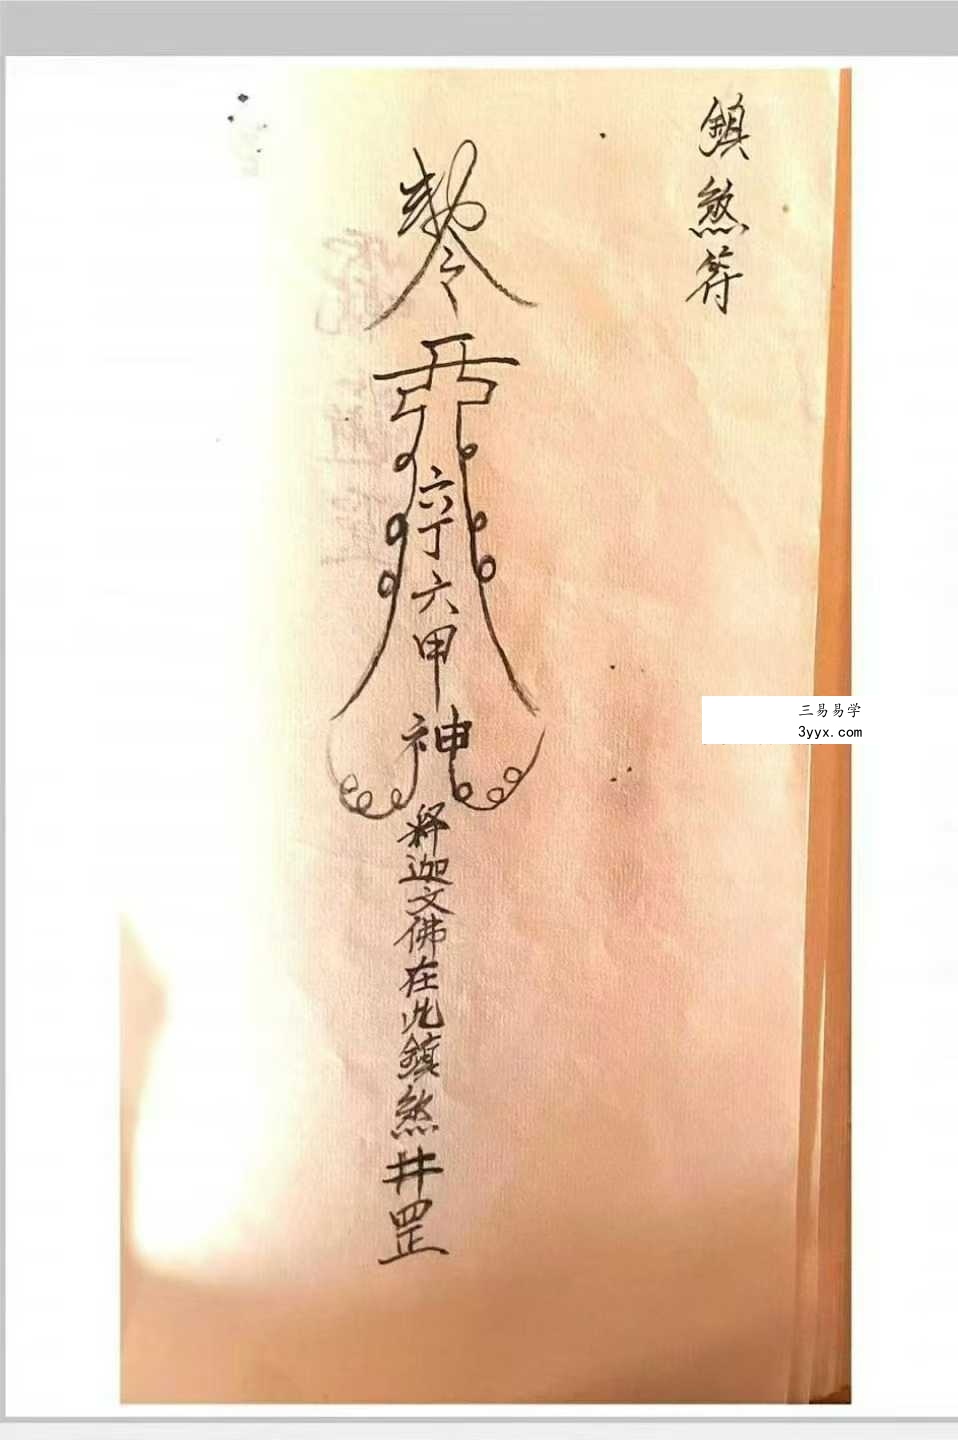 鎮煞符
敕令
六丁六甲神
释迦文佛在此鎮煞井罡
三易易学
3yyx.com